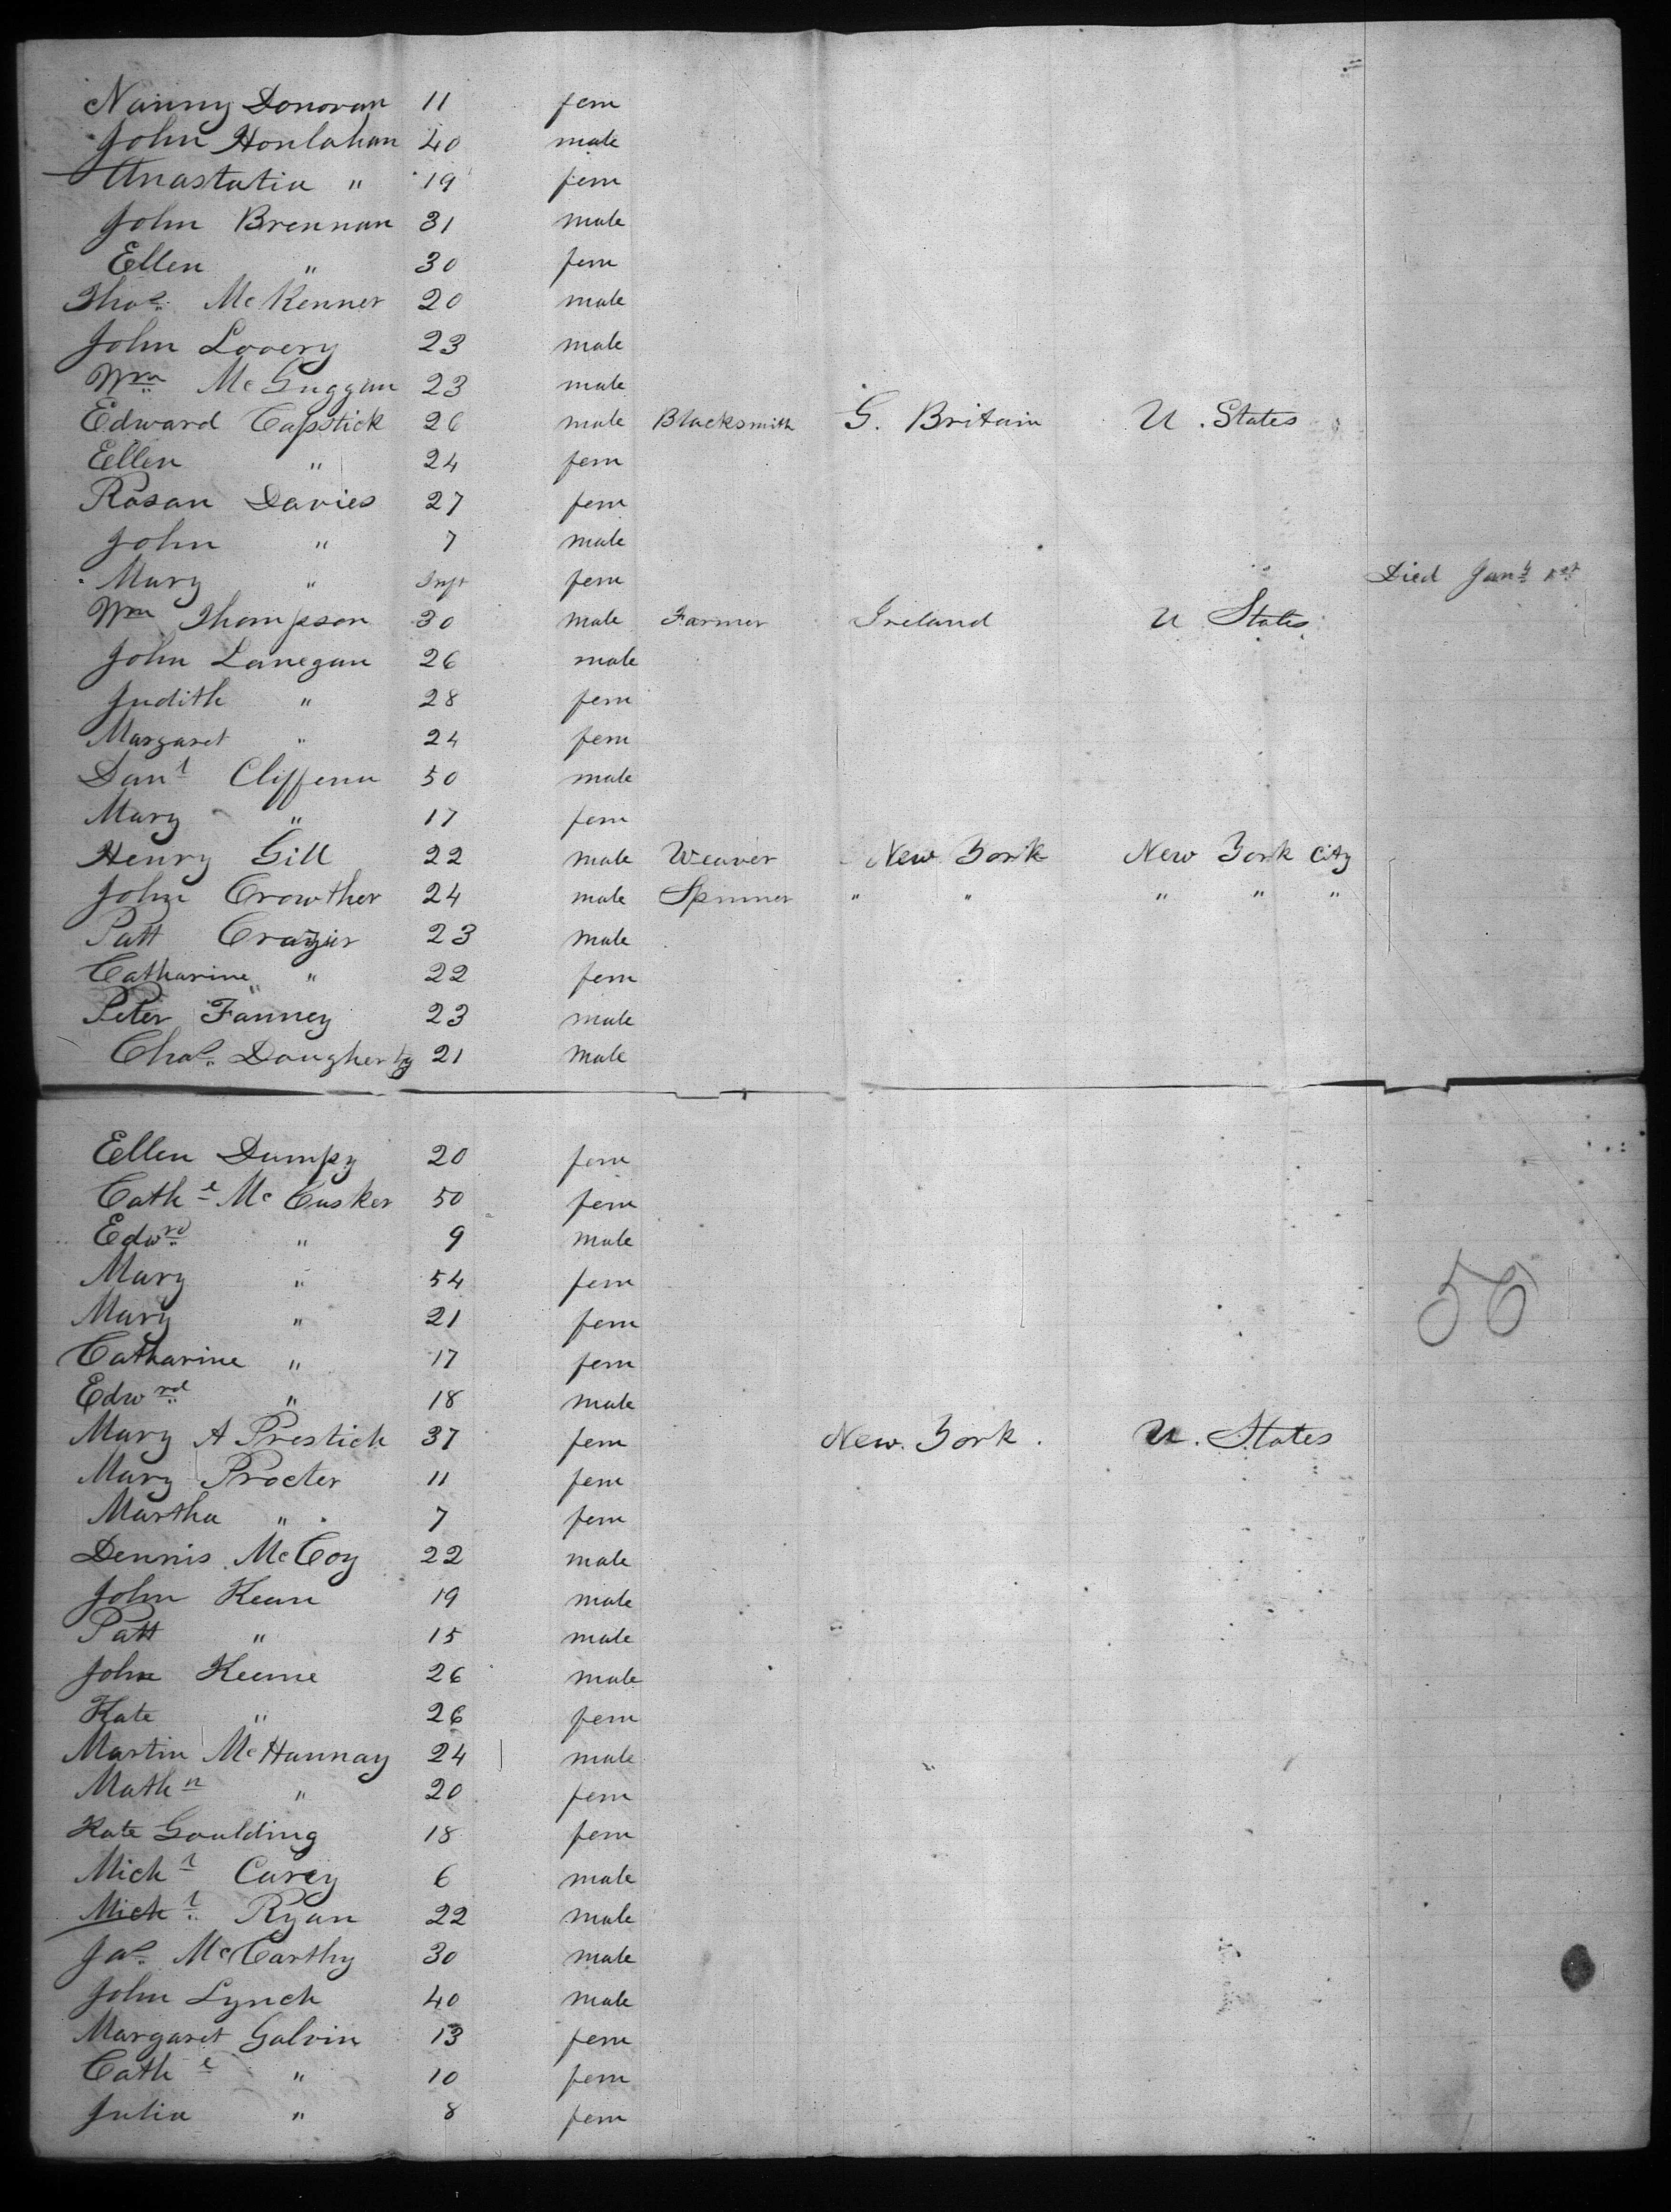 Nanny Donovan 11 fem
John Honlahan 40 male
Anastatia " 19 fem
John Brennan 31 male
Ellen " 30 fem
Thos. McKenner 20 male
John Lovery 23 male
Wm McGuggan 23 male
Edward Capstick 26 male Blacksmith G. Britain U. States
Ellen " 24 fem
Rosan Davies 27 fem
John " 7 male
Mary " Inft fem Died Jany 1st
Wm Thompson 30 male Farmer Ireland U States
John Lanegan 26 male
Judith " 28 fem
Margaret " 24 fem
Danl Cliffenn 50 male
Mary " 17 fem
Henry Gill 22 male Weaver New York New York City
John Crowther 24 male Spinner " " " " "
Patt Crazier 23 male
Catharine " 22 fem
Peter Fanney 23 male
Chas. Dougherty 21 male
Ellen Dumpy 20 fem
Cathe McCusker 50 fem
Edwrd " 9 male
Mary " 54 fem
Mary " 21 fem
Catharine " 17 fem
Edwrd " 18 male
Mary A Prestich 37 fem New York. U. States
Mary Procter 11 fem
Martha " 7 fem
Dennis McCoy 22 male
John Kean 19 male
Patt " 15 male
John Keeme 26 male
Kate " 26 fem
Martin McHannay 24 male
Mathn " 20 fem
Kate Goulding 18 fem
Michl Carey 6 male
Michl Ryan 22 male
Jas. McCarthy 30 male
John Lynch 40 male
Margaret Galvin 13 fem
Cathe " 10 fem
Julia " 8 fem